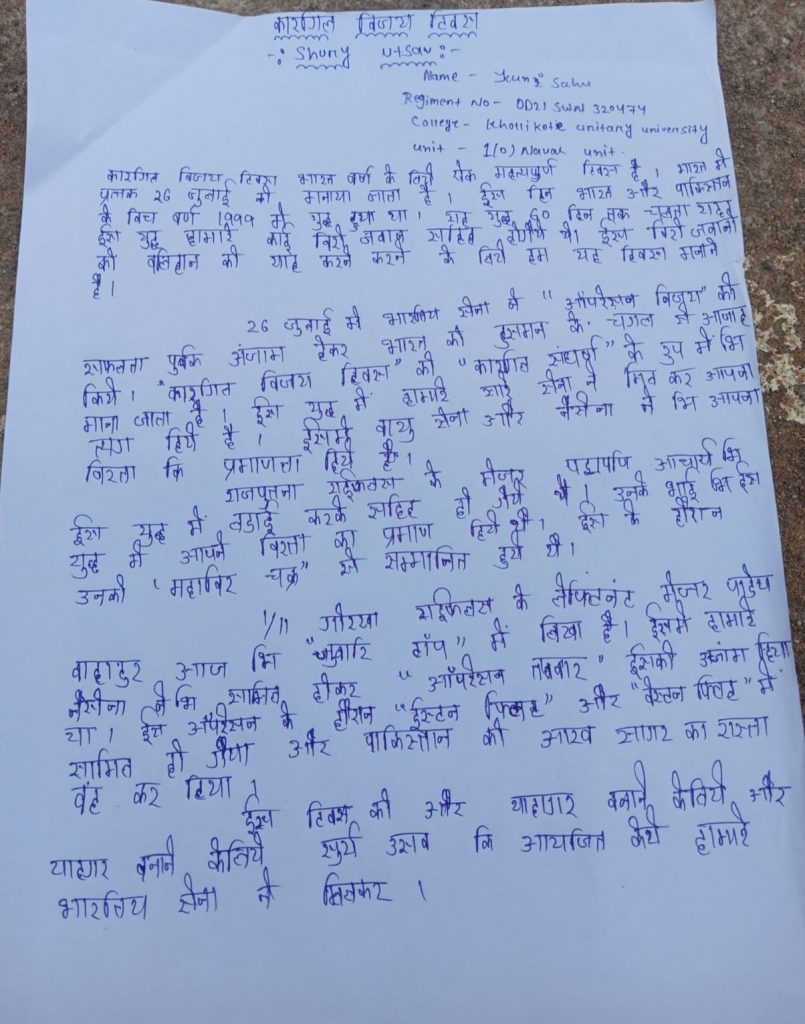 कारगिल विजय दिवस
-: Shury Utsav :-
Name - Kunj Sahu
Regiment No - OD21 SWN 320474
College - Khollikote unitary university
unit - 1(O) Naval unit.
कारगिल विजय दिवस भारत वर्ष के लिये ऐक महत्यपुर्ण दिवस है । भारत में
प्रत्तक 26 जुलाई में मानाया जाता है । ईस दिन भारत और पाकिस्तान
के विच वर्ष 1999 में युद्ध हुया था । यह युद्ध 60 दिन तक चलता
ईस युद्ध हामारे कई विरो जवान सहिद होगये थे। ईस विरो जवानो
की वलिदान को याद करने करने के लिये हम यह दिवस मनाते
है ।
26 जुलाई में भारतिय सेना ने "ऑपरेसन विजय" को
सफलता पुर्वक अंजाम देकर भारत को दुसमन के चंगल से आजाद
किये । "कारगिल विजय दिवस" को "कारगिल संघर्ष" के रुप में भि
माना जाता है । ईस युद्ध में हामारे सारे सेना ने मिल कर आपना
त्यग दिये है । ईसमें वायु सेना और नैसेना ने भि आपना
विरता कि प्रमाणता दिये है ।
राजपुतना राईफलस के मेजर पद्मपणि आचार्य भि
ईस युद्ध में लडाई करके सहिद हो गैये थे । उनके भाई भि ईस
युद्ध में आपने विरता का प्रमाण दिये थे । ईस के दौरान
उनको "महाविर चक्र" से सम्मानित हुये थे ।
1/11 गोरखा राईफलस के लेफ्टिनंट मेजर पाडेय
वाहादुर आज भि "जुवारि टॉप" में लिखा है । ईसमे हामारे
नैसेना ने भि सामिल होकर "ऑपरेसन तलवार" ईसको अंजाम दिया
था । ईस ऑपरेसन के दौरान "ईस्टन फ्लिट" और "वेस्टन फ्लिट" में
सामिल हो गैया और पाकिस्तान की आरव सागर का रास्ता
वंद कर दिया ।
ईस दिवस को और यादगार वनाने केलिये और
यादगार वनाने केलिये सुर्य उसव कि आयजित कैये हामारे
भारतिय सेना ने मिलकर ।